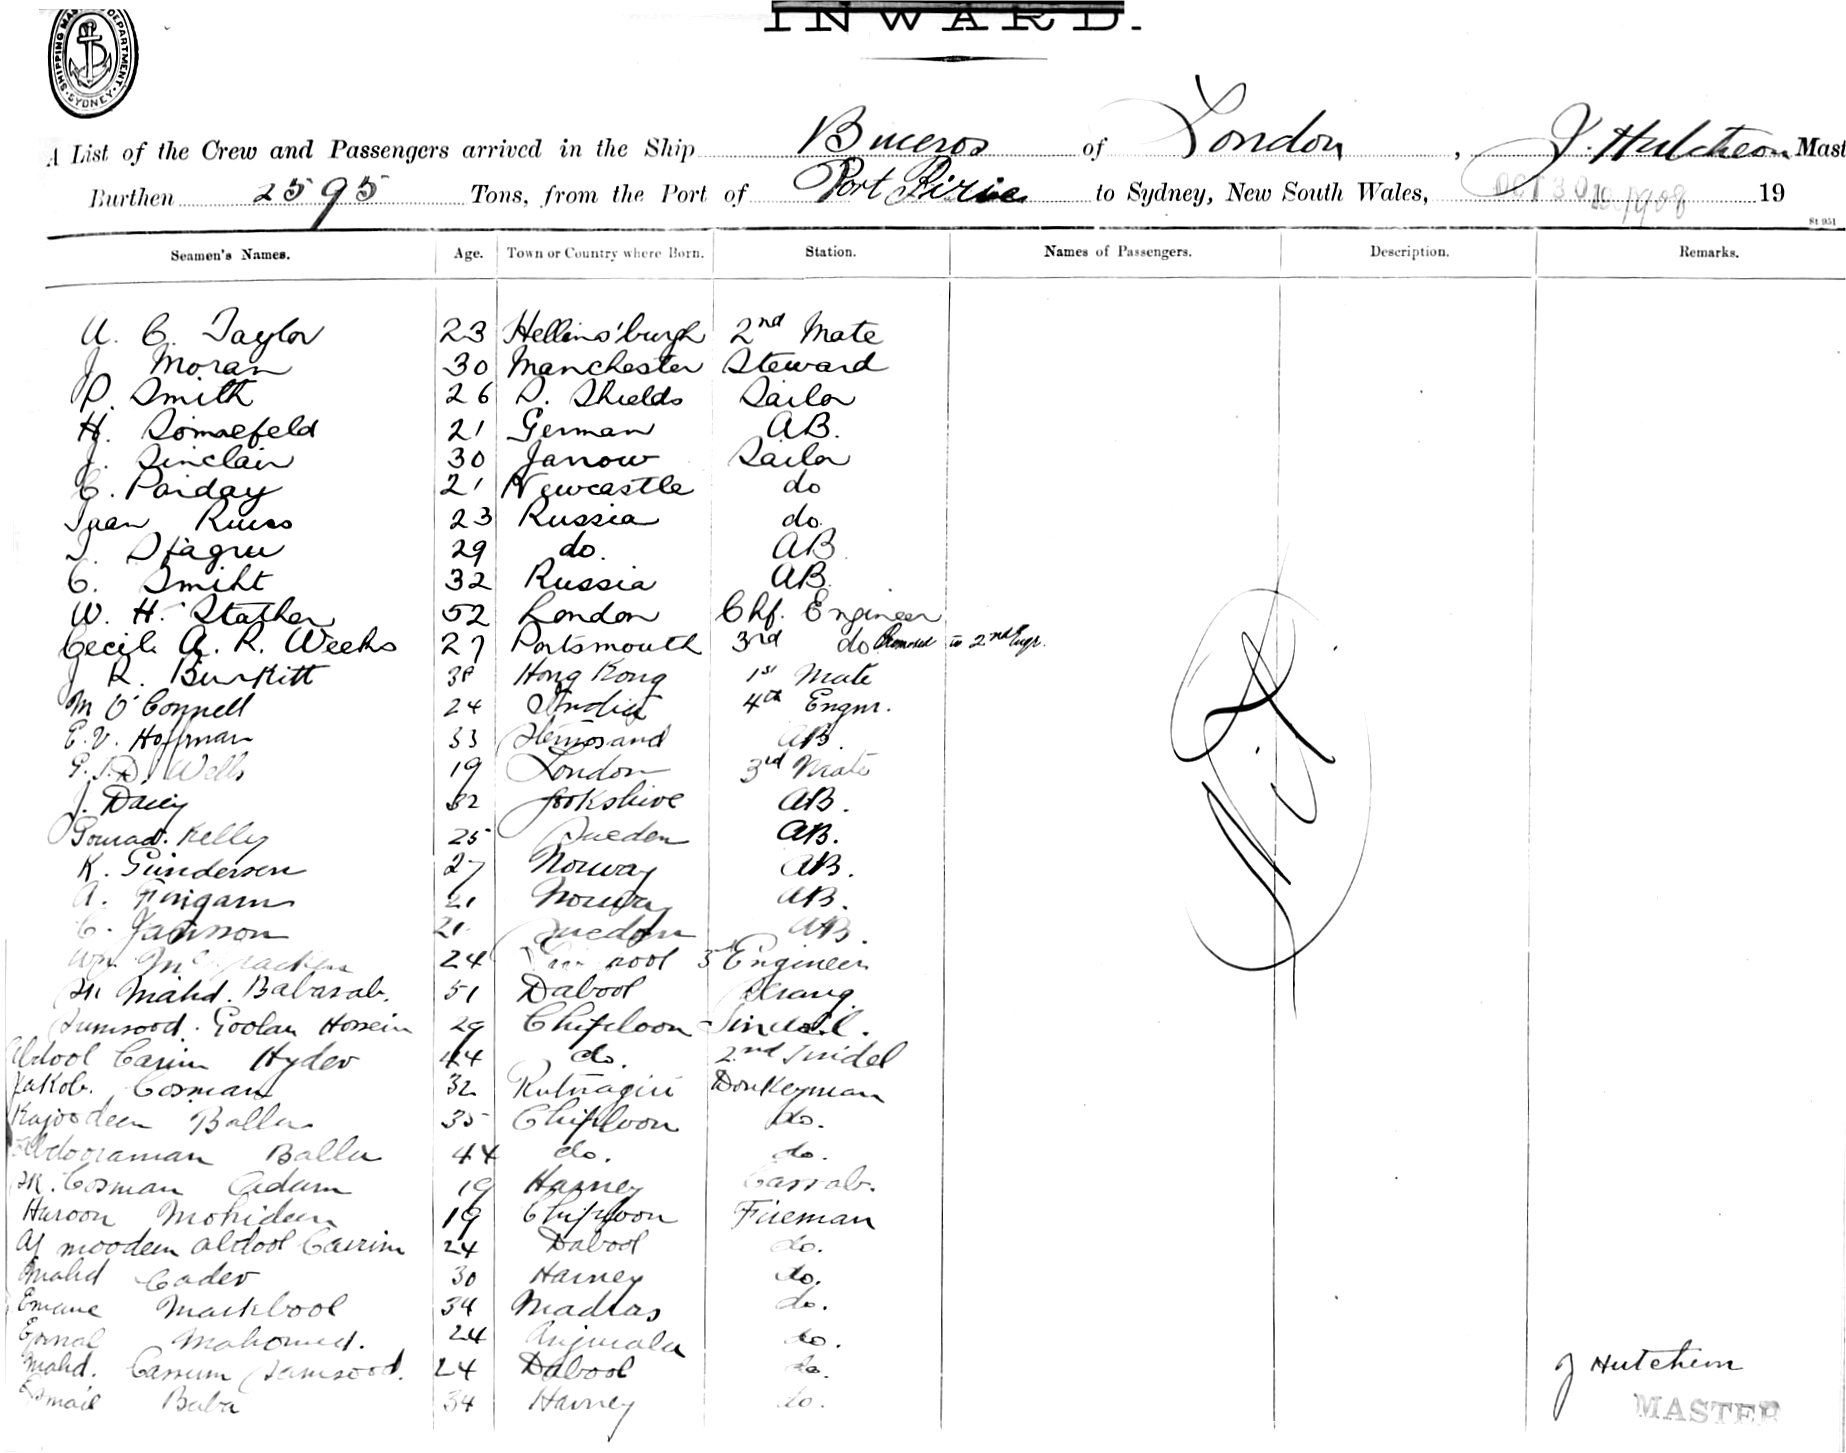 SHIPPING MASTER'S DEPARTMENT. SYDNEY
INWARD.
A List of the Crew and Passengers arrived in the Ship Buceros of London, J. Hutcheon Mast
Burthen 2595 Tons, from the Port of Port Pirie to Sydney, New South Wales, OCT 30 1908 19
St 951
Seamen's Names. Age. Town or Country where Born. Station. Names of Passengers. Description. Remarks.
A. C. Taylor 23 Hellins'burgh 2nd Mate
J Moran 30 Manchester Steward
P. Smith 26 S. Shields Sailor
H. 21 German AB.
J. Sinclair 30 Jarrow Sailor
C. Pariday 21 Newcastle do
23 Russia do.
29 do. AB.
C. Smiht 32 Russia AB.
W. H. Stather 52 London Chf. Engineer
Cecil A. R. Weeks 27 Portsmouth 3rd do Promoted to 2nd Engr.
J R. Burkitt 38 Hong Kong 1st Mate
M O'Connell 24 India 4th Engnr.
E. V. Hoffman 33 AB.
Wells 19 London 3rd Mate
J. 32 AB.
Kelly 25 Sueden AB.
K. Gundersen 27 Norway AB.
A. 21 Norway AB.
C. 21 Sueden AB.
Wm Mc 24 5th Engineer
Mahd. Babasab. 51 Dabool Serang
Goolam Hossein 29 Chiploon
Abdool Carim Hyder 44 do. 2nd Tindel
Jakob. Cosman 32 Rutnagiri Donkeyman
Kajoodeen Balla 35 Chiploon do.
Abdooraman Balla 44 do. do.
Cosman Adam 19 Harney Cassab.
Huroon Mohideen 19 Chiploon Fireman
moodeen Abdool Carrim 24 Dabool do.
Mahd Cader 30 Harney do.
Emame Mackbool 34 Madras do.
Mahomed. 24 do.
Mahd. Cassum 24 Dabool do.
Esmail Baba 34 Harney do.
J Hutcheon
MASTER